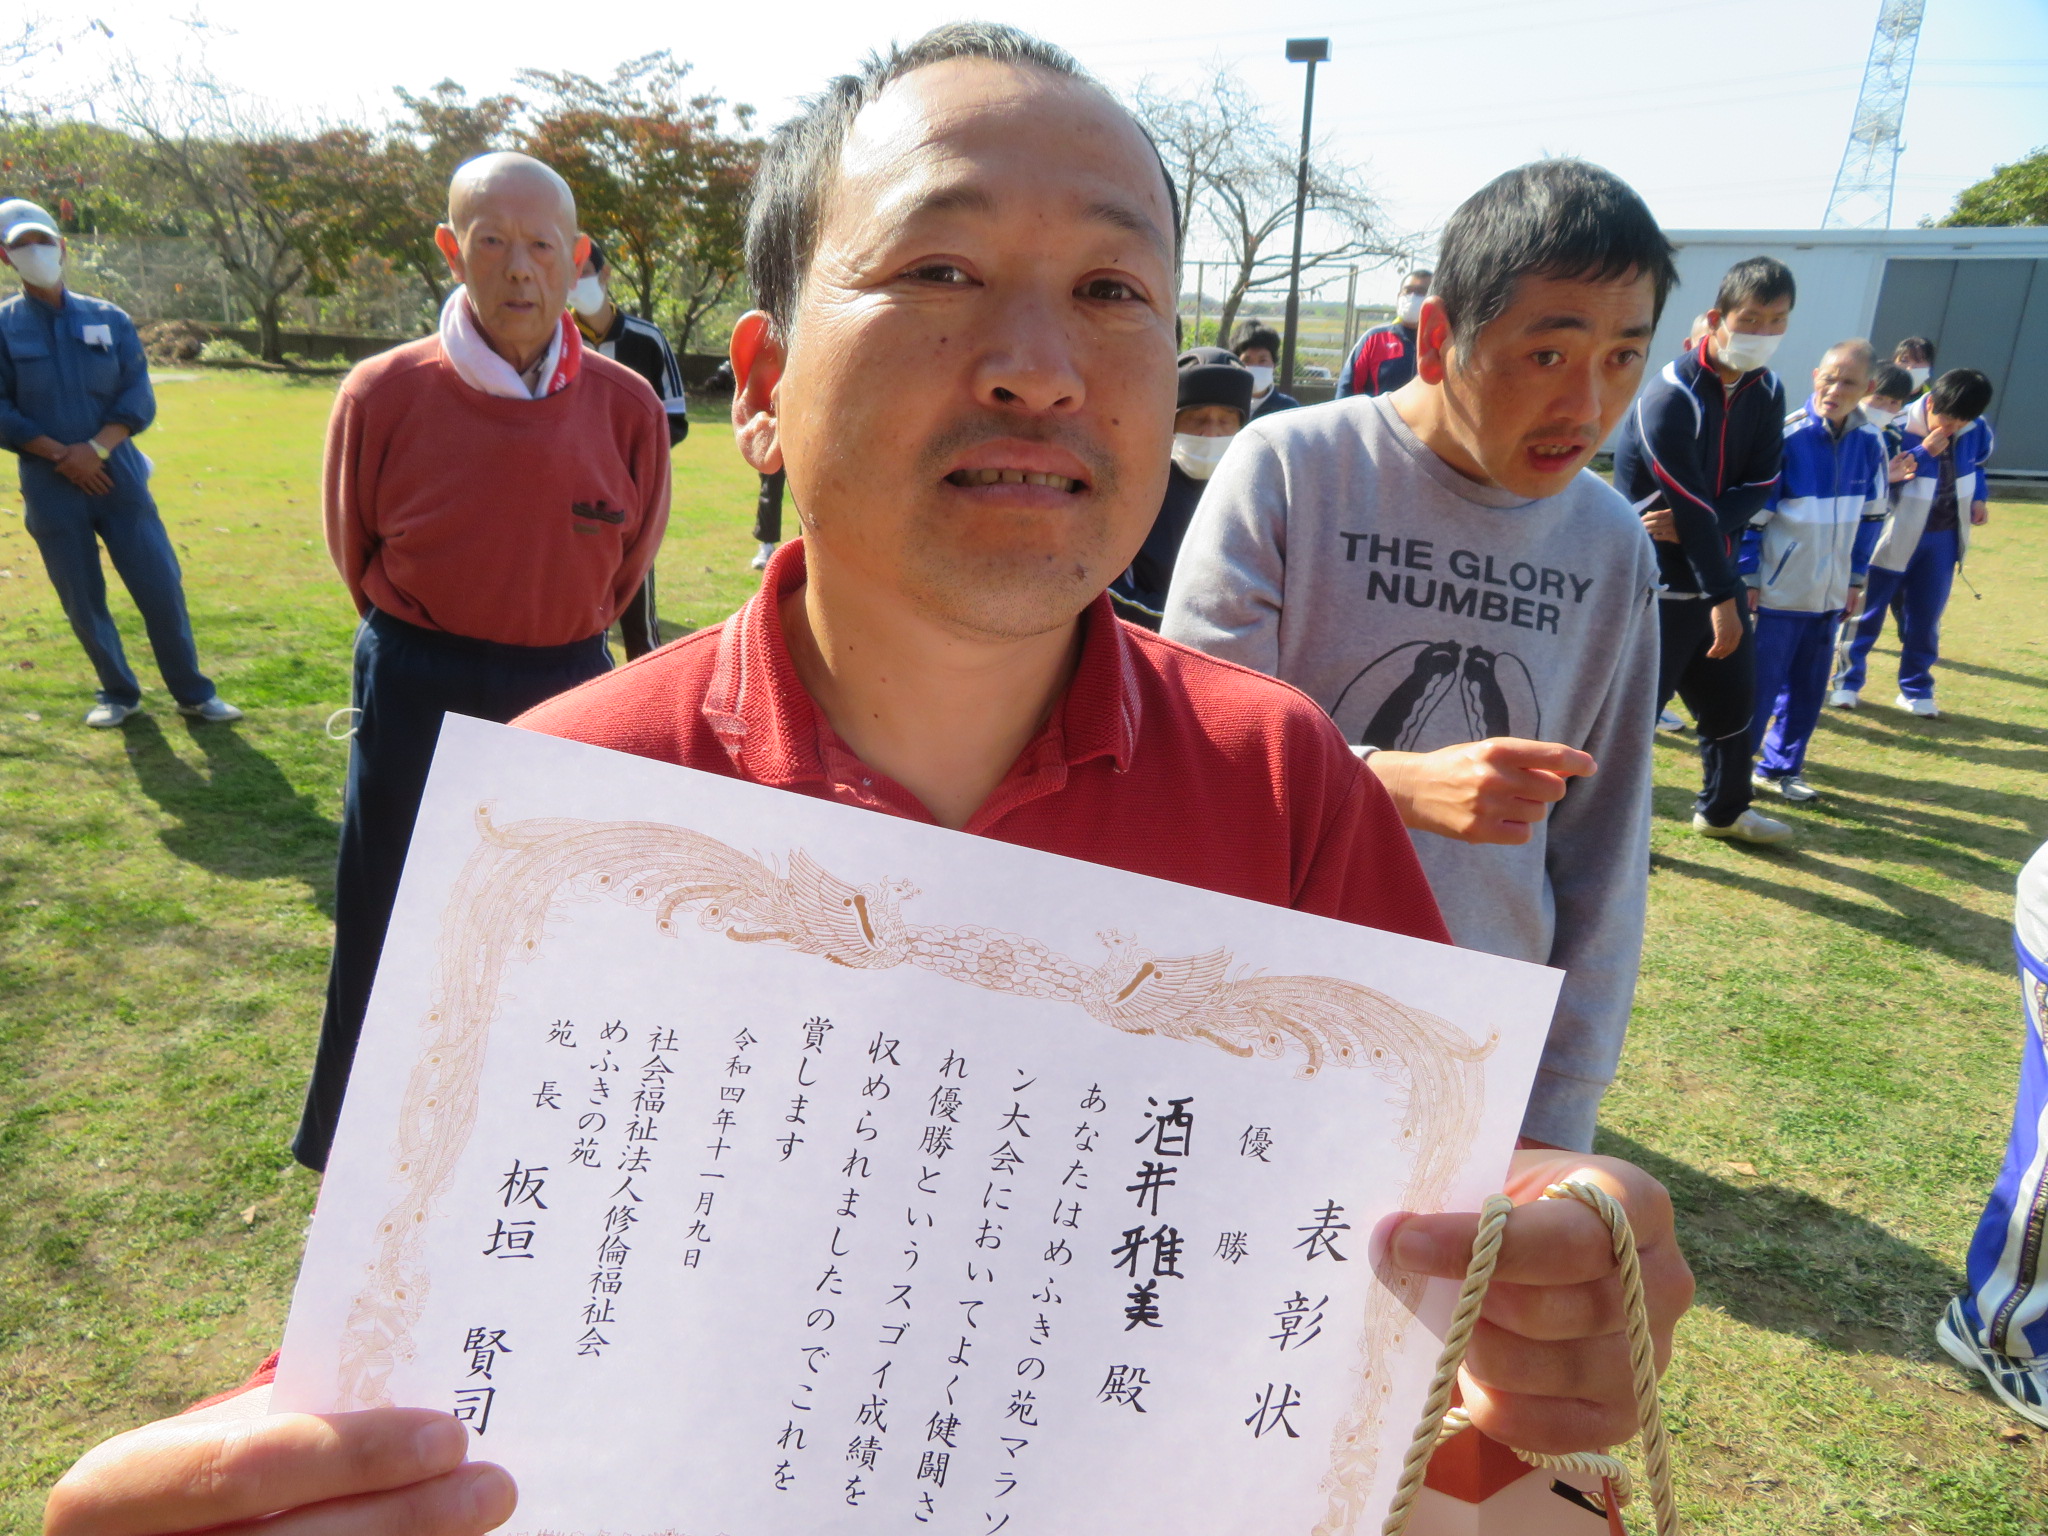 表彰状
優勝
酒井雅美 殿
あなたはめふきの苑マラソ
ン大会においてよく健闘さ
れ優勝というスゴイ成績を
収められましたのでこれを
賞します
令和四年十一月九日
社会福祉法人修倫福祉会
めふきの苑
苑長 板垣 賢司
THE GLORY
NUMBER